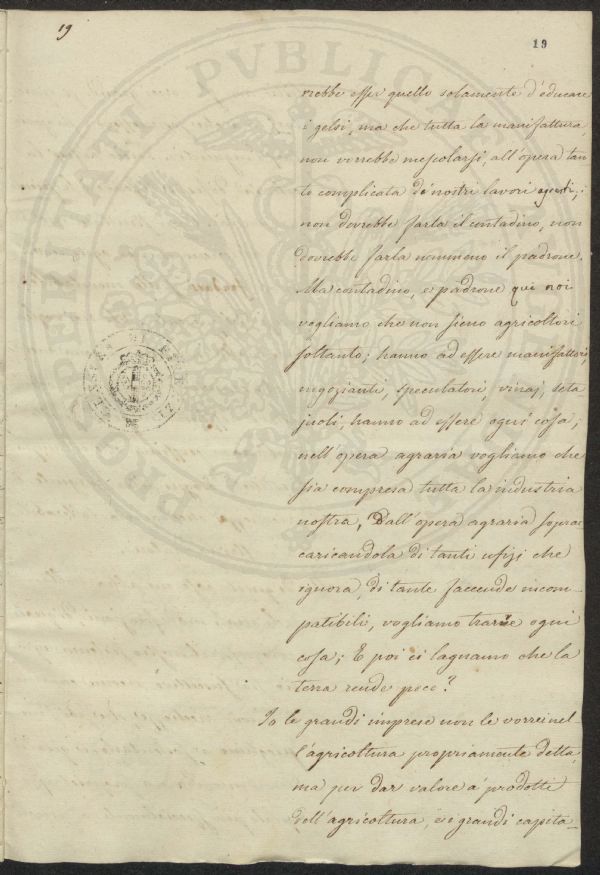 19
19
rrebbe esser quello solamente d'educare
i gelsi, ma che tutta la manifattura
non vorrebbe mescolarsi, all'opera tan
to complicata de' nostri lavori agrarj;
non dovrebbe farla il contadino, non
dovrebbe farla nemmeno il padrone.
Ma contadino, e padrone quì noi
vogliamo che non sieno agricoltori
soltanto; hanno ad essere manifattori,
negozianti, speculatori, vinaj, seta
juoli, hanno ad essere ogni cosa;
nell'opera agraria vogliamo che
sia compresa tutta la industria
nostra, Dall'opera agraria sopra-
caricandola di tanti ufizj che
ignora, di tante faccende incom-
patibili, vogliamo trarne ogni
cosa; E poi ci lagnamo che la
terra rende poco?
Io le grandi imprese non le vorrei nel-
l'agricoltura propriamente detta,
ma per dar valore a' prodotti
dell'agricoltura, e i grandi capita-
PROSPERITATI PVBLICAE